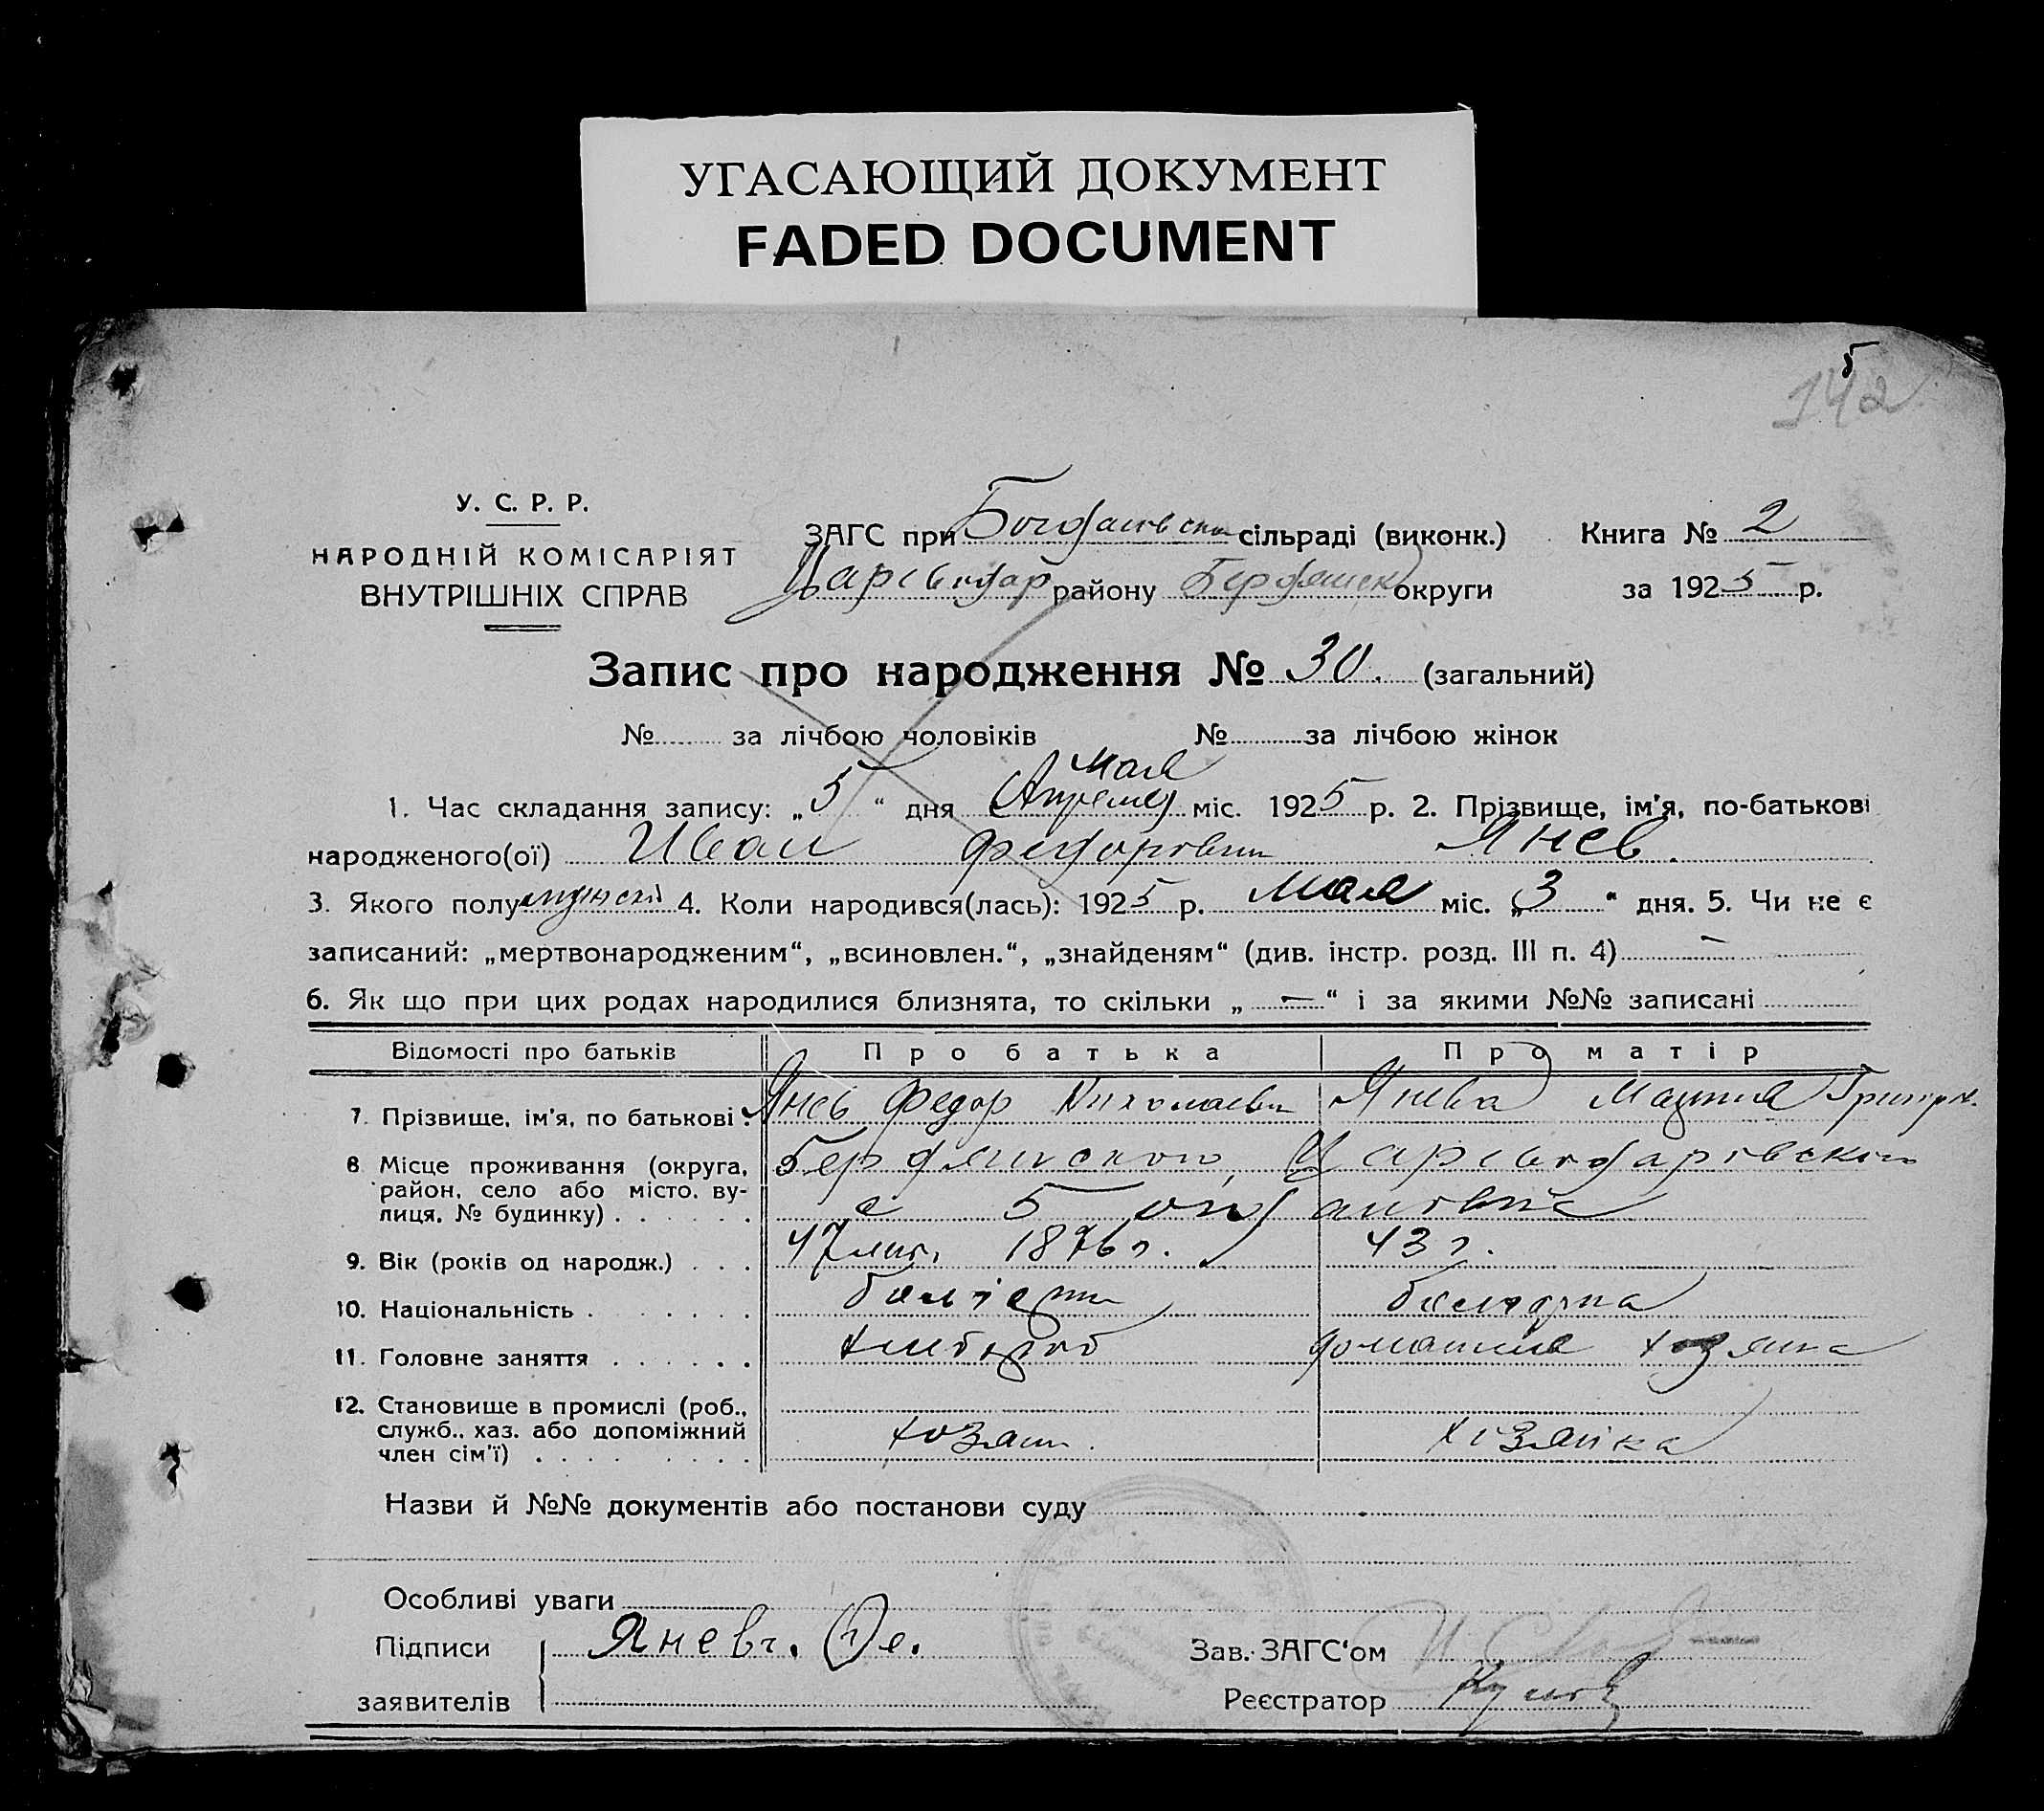 УГАСАЮЩИЙ ДОКУМЕНТ
FADED DOCUMENT
5
142
У. С. Р. Р.
НАРОДНІЙ КОМІСАРІЯТ
ВНУТРІШНІХ СПРАВ
ЗАГС при сільраді (виконк.) Книга № 2
району округи за 1925 р.
Запис про народження № 30. (загальний)
№ за лічбою чоловіків № за лічбою жінок
Мая
1. Час складання запису: „5“ дня Апреля міс. 1925 р. 2. Прізвище, ім'я, по-батькові
народженого(ої) Иван Федорович Янев.
3. Якого полу 4. Коли народився(лась): 1925 р. Мая міс. „3“ дня. 5. Чи не є
записаний: „мертвонародженим“, „всиновлен.“, „знайденям“ (див. інстр. розд. III п. 4) —
6. Як що при цих родах народилися близнята, то скільки „—“ і за якими №№ записані
Відомості про батьків Про батька Про матір
7. Прізвище, ім'я, по батькові. Янев Федор Николаевич Янева
8 Місце проживання (округа,
район, село або місто, ву-
лиця, № будинку)......
9. Вік (років од народж.)... 47 лет, 1876 г. 43 г.
10. Національність......
11. Головне заняття...... хлебороб домашняя хозяйка
12. Становище в промислі (роб.,
служб., хаз. або допоміжний
член сім'ї)........ хозяин. хозяйка
Назви й №№ документів або постанови суду
Особливі уваги
Підписи Яневъ. Фе. Зав. ЗАГС'ом
заявителів Реєстратор